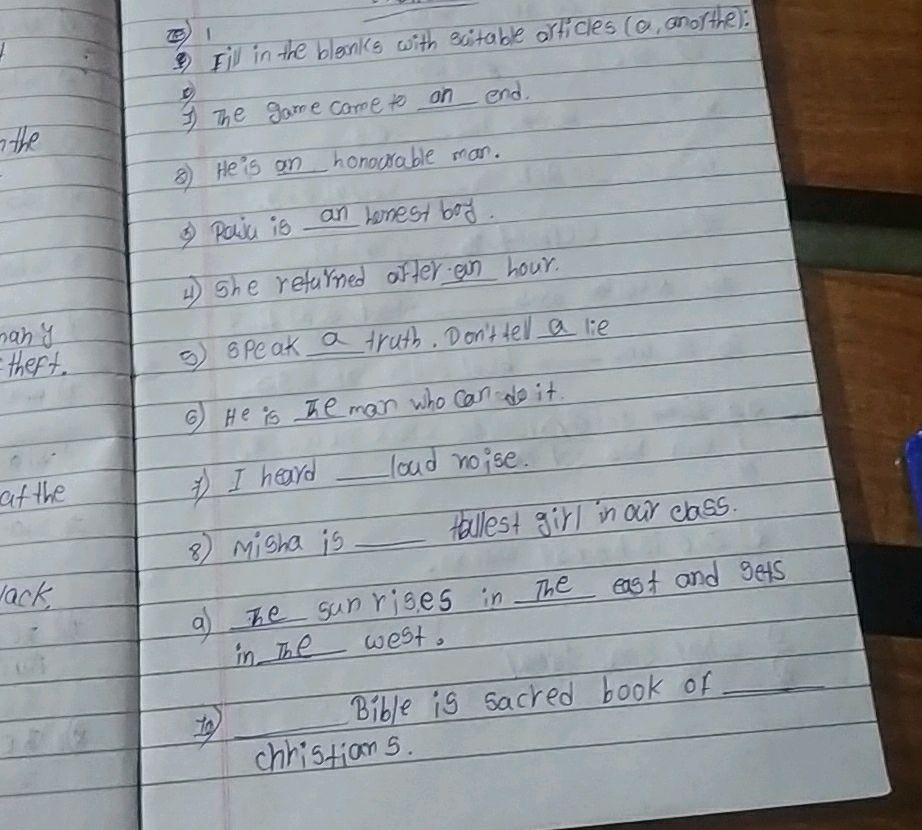 1
Fill in the blanks with suitable articles (a, an or the):
1) The game came to an end.
2) He is an honourable man.
3) Raju is an honest boy.
4) She returned after an hour.
5) Speak a truth. Don't tell a lie
6) He is The man who can do it.
7) I heard ___ loud noise.
8) Misha is ___ tallest girl in our class.
9) The sun rises in The east and sets
in The west.
10) ___ Bible is sacred book of ___
christians.
the
many
theft.
at the
lack.